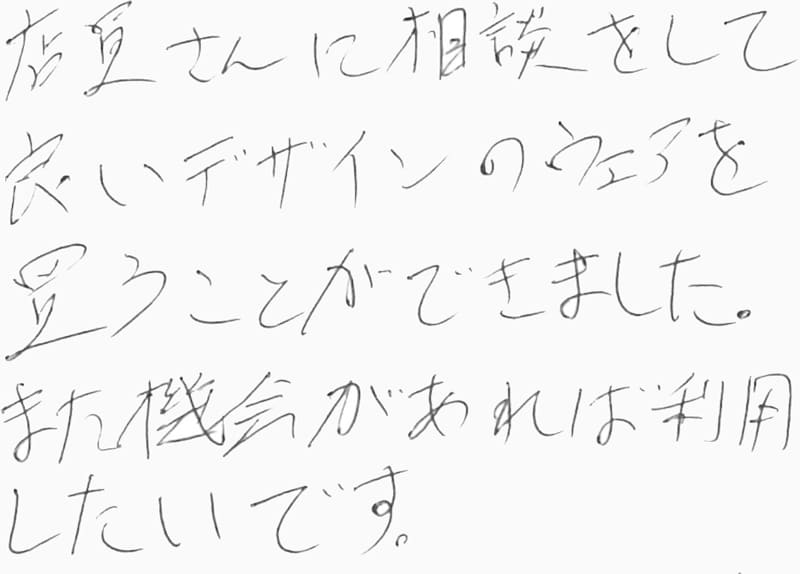 店員さんに相談をして
良いデザインのウェアを
買うことができました。
また機会があれば利用
したいです。